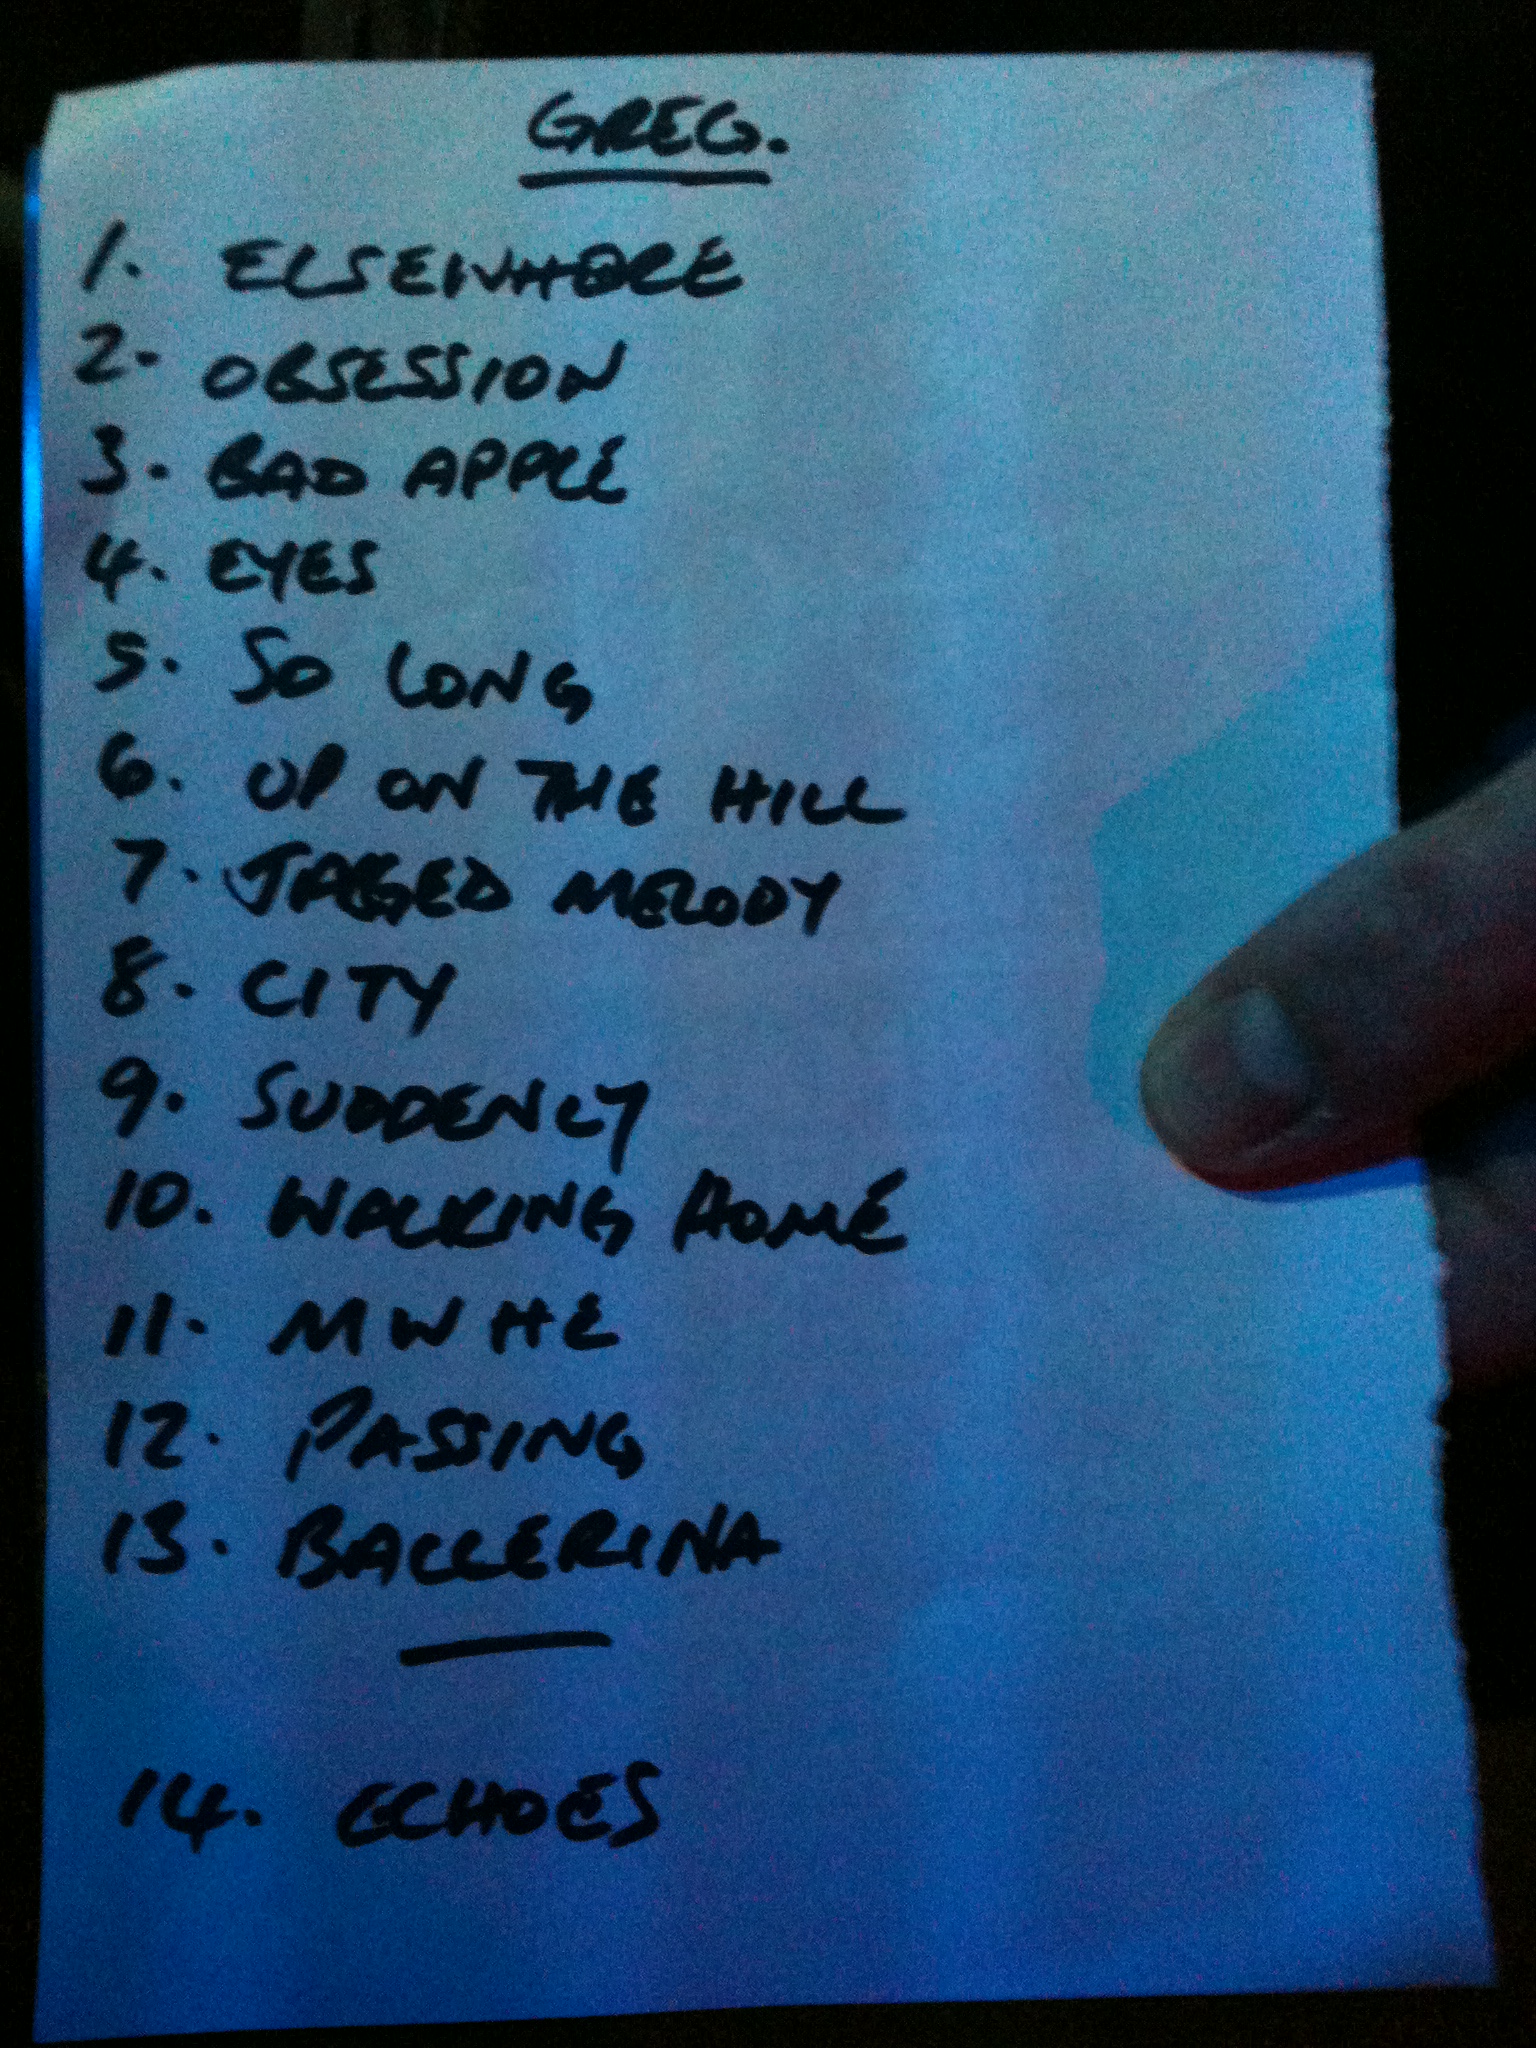 GREG.
1. ELSEWHERE
2. OBSESSION
3. BAD APPLE
4. EYES
5. SO LONG
6. UP ON THE HILL
7. JAGGED MELODY
8. CITY
9. SUDDENLY
10. WALKING HOME
11. MWHE
12. PASSING
13. BALLERINA
14. ECHOES